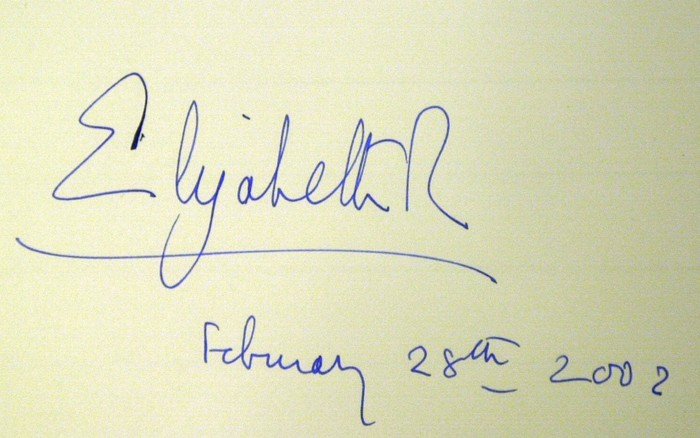 Elizabeth R
February 28th 2002